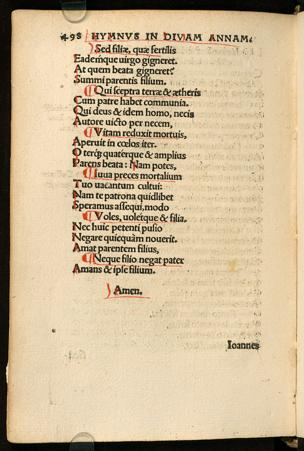 498 HYMNVS IN DIVAM ANNAM.
Sed filiæ, quæ fertilis
Eademque uirgo gigneret.
At quem beata gigneret?
Summi parentis filium.
¶ Qui sceptra terræ & ætheris
Cum patre habet communia.
Qui deus & idem homo, necis
Autore uicto per necem,
¶ Vitam reduxit mortuis,
Aperuit in cœlos iter.
O terq; quaterque & amplius
Parens beata: Nam potes,
¶ Iuua preces mortalium
Tuo uacantum cultui:
Nam te patrona quidlibet
Speramus assequi, modo
¶ Voles, uoletque & filia.
Nec huic petenti pusio
Negare quicquàm nouerit.
Amat parentem filius,
¶ Neque filio negat pater
Amans & ipse filium.
Amen.
Ioannes